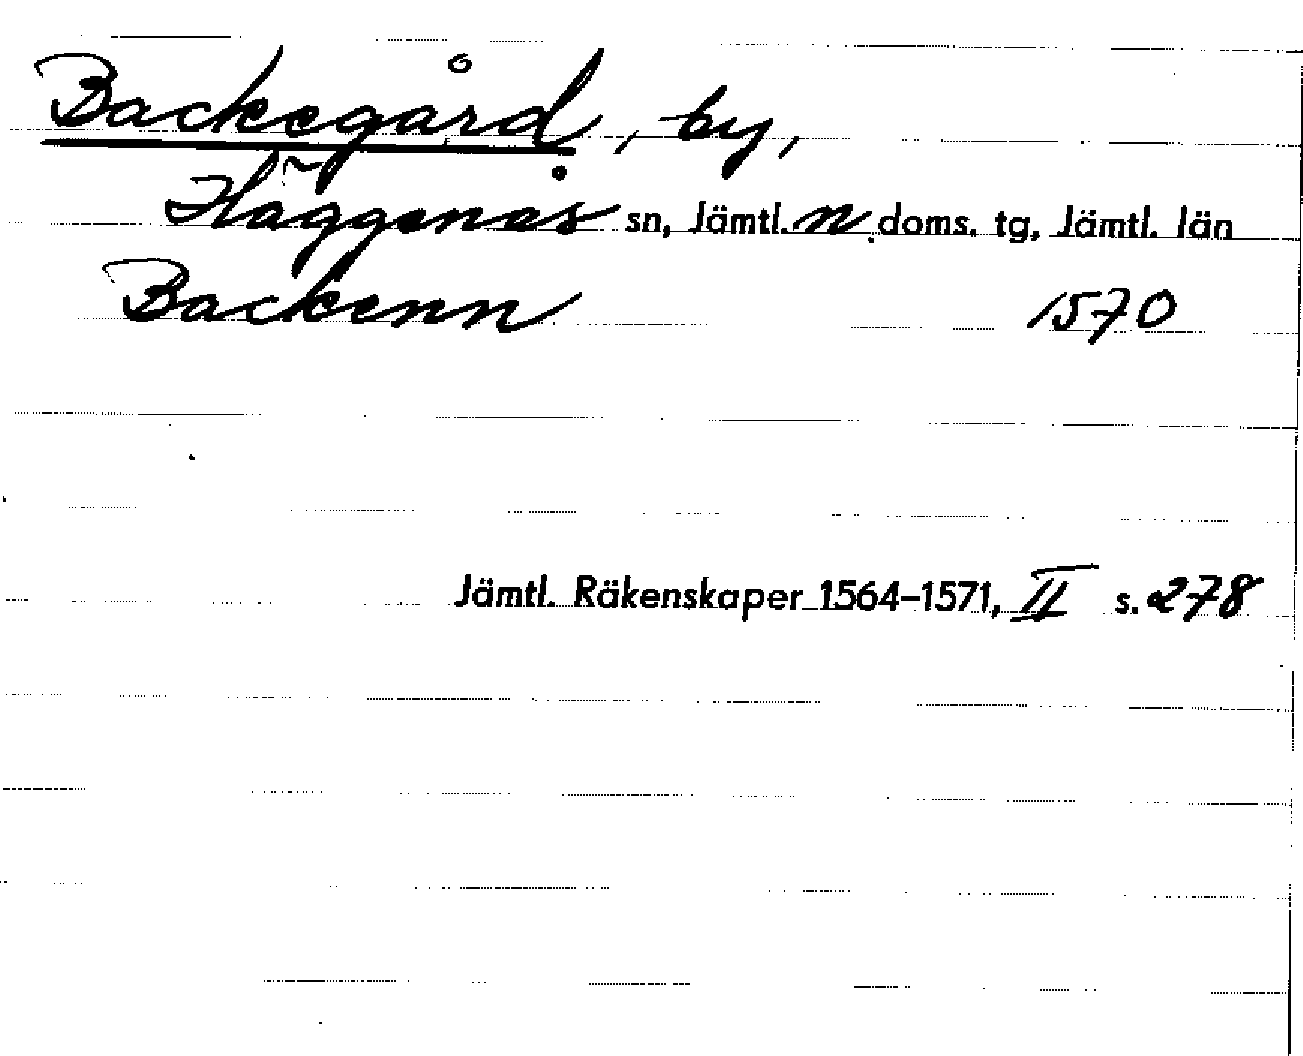 Backegård, by,
Häggenås sn, Jämtl. n doms. tg, Jämtl. län
Backenn 1570
Jämtl. Räkenskaper 1564-1571, II s. 278